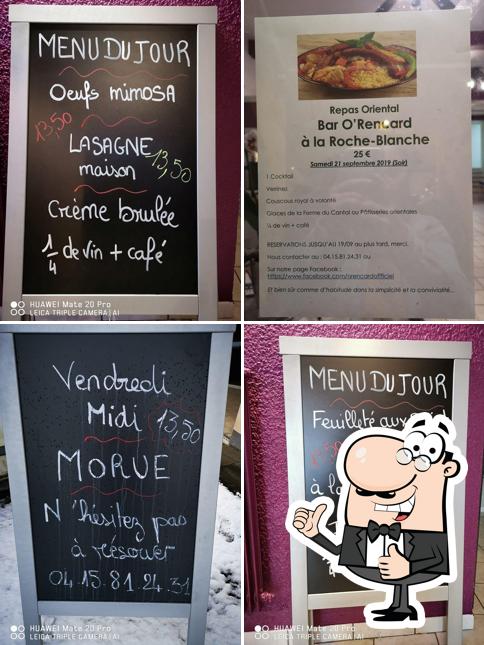 MENU DU JOUR
Oeufs mimosA
13,50
LASAGNE
13,50
maison
Crème brulée
1/4 de vin + café
HUAWEI Mate 20 Pro
LEICA TRIPLE CAMERA | AI
Repas Oriental
Bar O'Rencard
à la Roche-Blanche
25 €
Samedi 21 septembre 2019 (Soir)
1 Cocktail
Verrines
Couscous royal à volonté
Glaces de la Ferme du Cantal ou Pâtisseries orientales
¼ de vin + café
RESERVATIONS JUSQU'AU 19/09 au plus tard, merci.
Nous contacter au : 04.15.81.24.31 ou
Sur notre page Facebook :
https://www.facebook.com/orencardofficiel
Et bien sûr comme d'habitude dans la simplicité et la convivialité...
Vendredi
Midi 13,50
MORUE
N'hésitez pas
à réserver
04.15.81.24.31
HUAWEI Mate 20 Pro
LEICA TRIPLE CAMERA | AI
MENU DU JOUR
Feuilleté aux
à la
HUAWEI Mate 20 Pro
LEICA TRIPLE CAMERA | AI